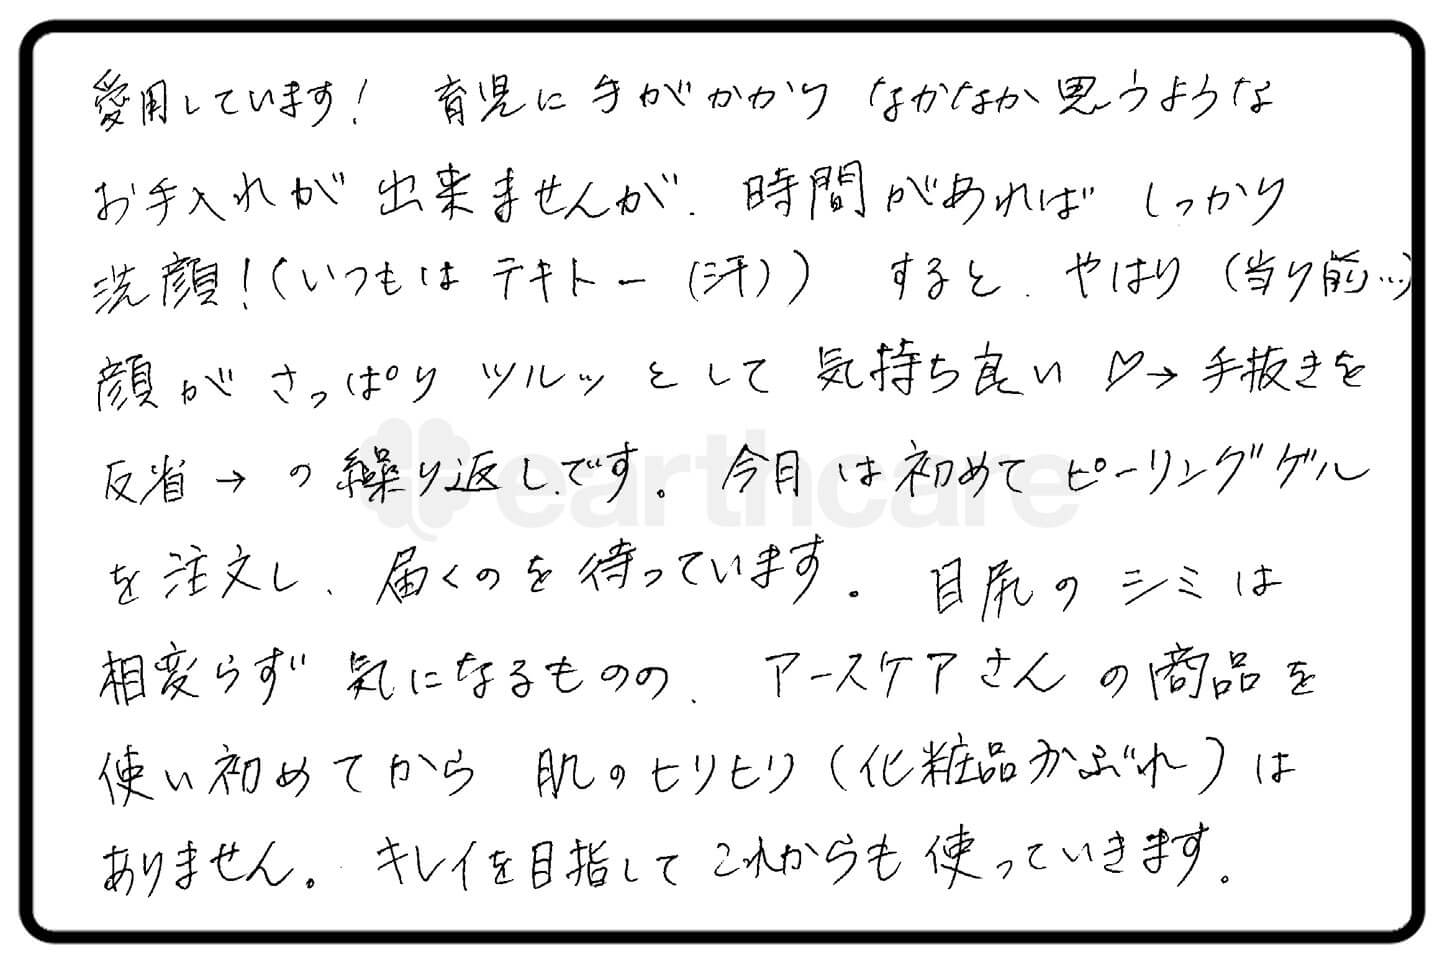 愛用しています! 育児に手がかかり なかなか思うような
お手入れが 出来ませんが、時間があれば しっかり
洗顔!(いつもは テキトー(汗)) すると、やはり(当り前…)
顔が さっぱり ツルッとして 気持ち良い♡→手抜きを
反省→の繰り返しです。今月は初めて ピーリングゲル
を注文し、届くのを待っています。目尻のシミは
相変らず 気になるものの、アースケアさんの商品を
使い初めてから 肌のヒリヒリ(化粧品かぶれ)は
ありません。キレイを目指して これからも 使っていきます。
earthcare